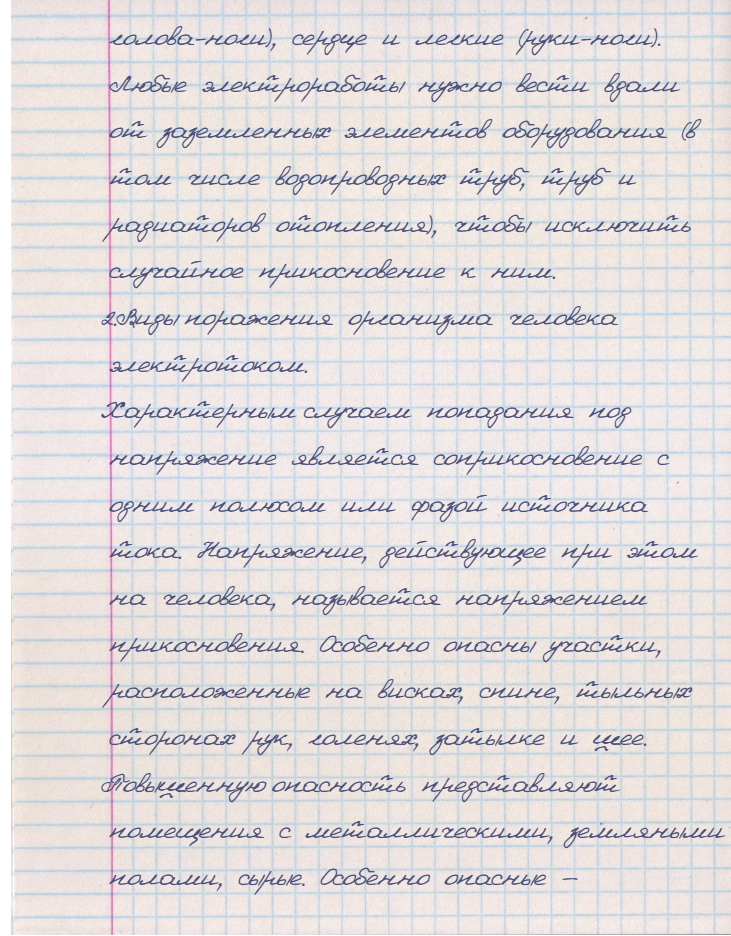 голова-ноги), сердце и легкие (руки-ноги).
Любые электроработы нужно вести вдали
от заземленных элементов оборудования (в
том числе водопроводных труб, труб и
радиаторов отопления), чтобы исключить
случайное прикосновение к ним.
2.Виды поражения организма человека
электротоком.
Характерным случаем попадания под
напряжение является соприкосновение с
одним полюсом или фазой источника
тока. Напряжение, действующее при этом
на человека, называется напряжением
прикосновения. Особенно опасны участки,
расположенные на висках, спине, тыльных
сторонах рук, голенях, затылке и шее.
Повышенную опасность представляют
помещения с металлическими, земляными
полами, сырые. Особенно опасные –